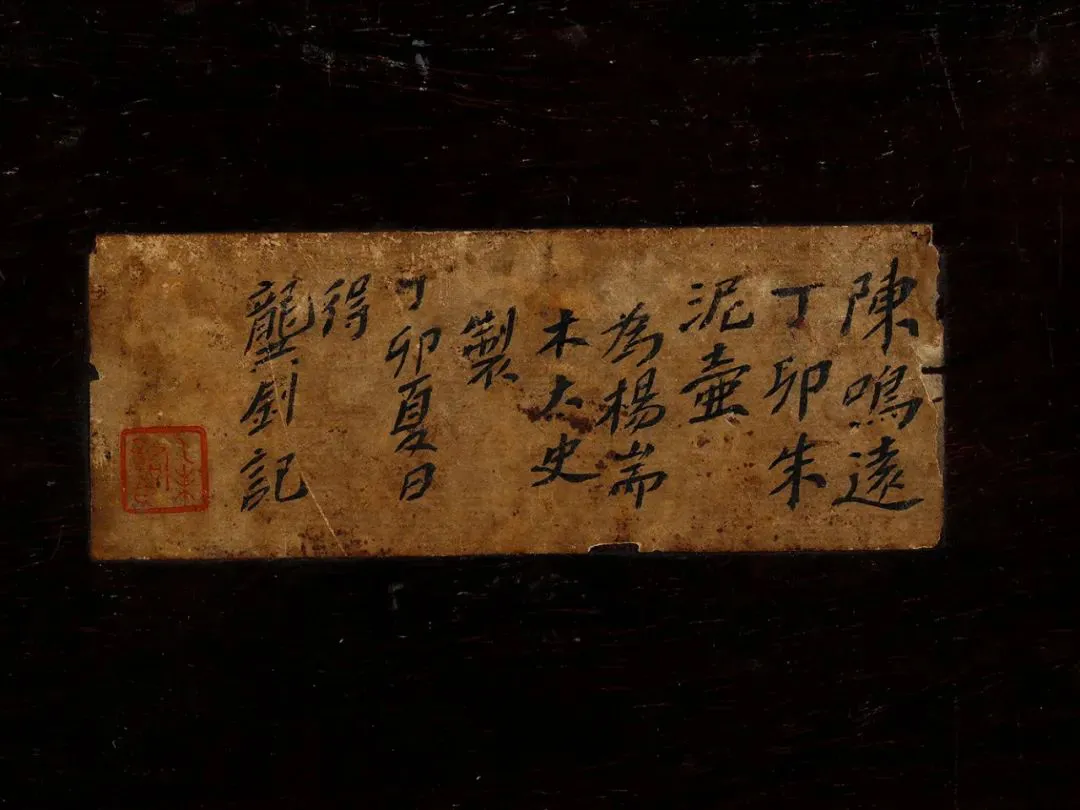 陳鳴遠
丁卯朱
泥壺
為楊耑
木太史
製
丁卯夏日
得
龔釗記